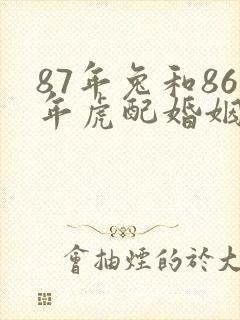 87年兔和86
年虎配婚姻
會抽煙的於大